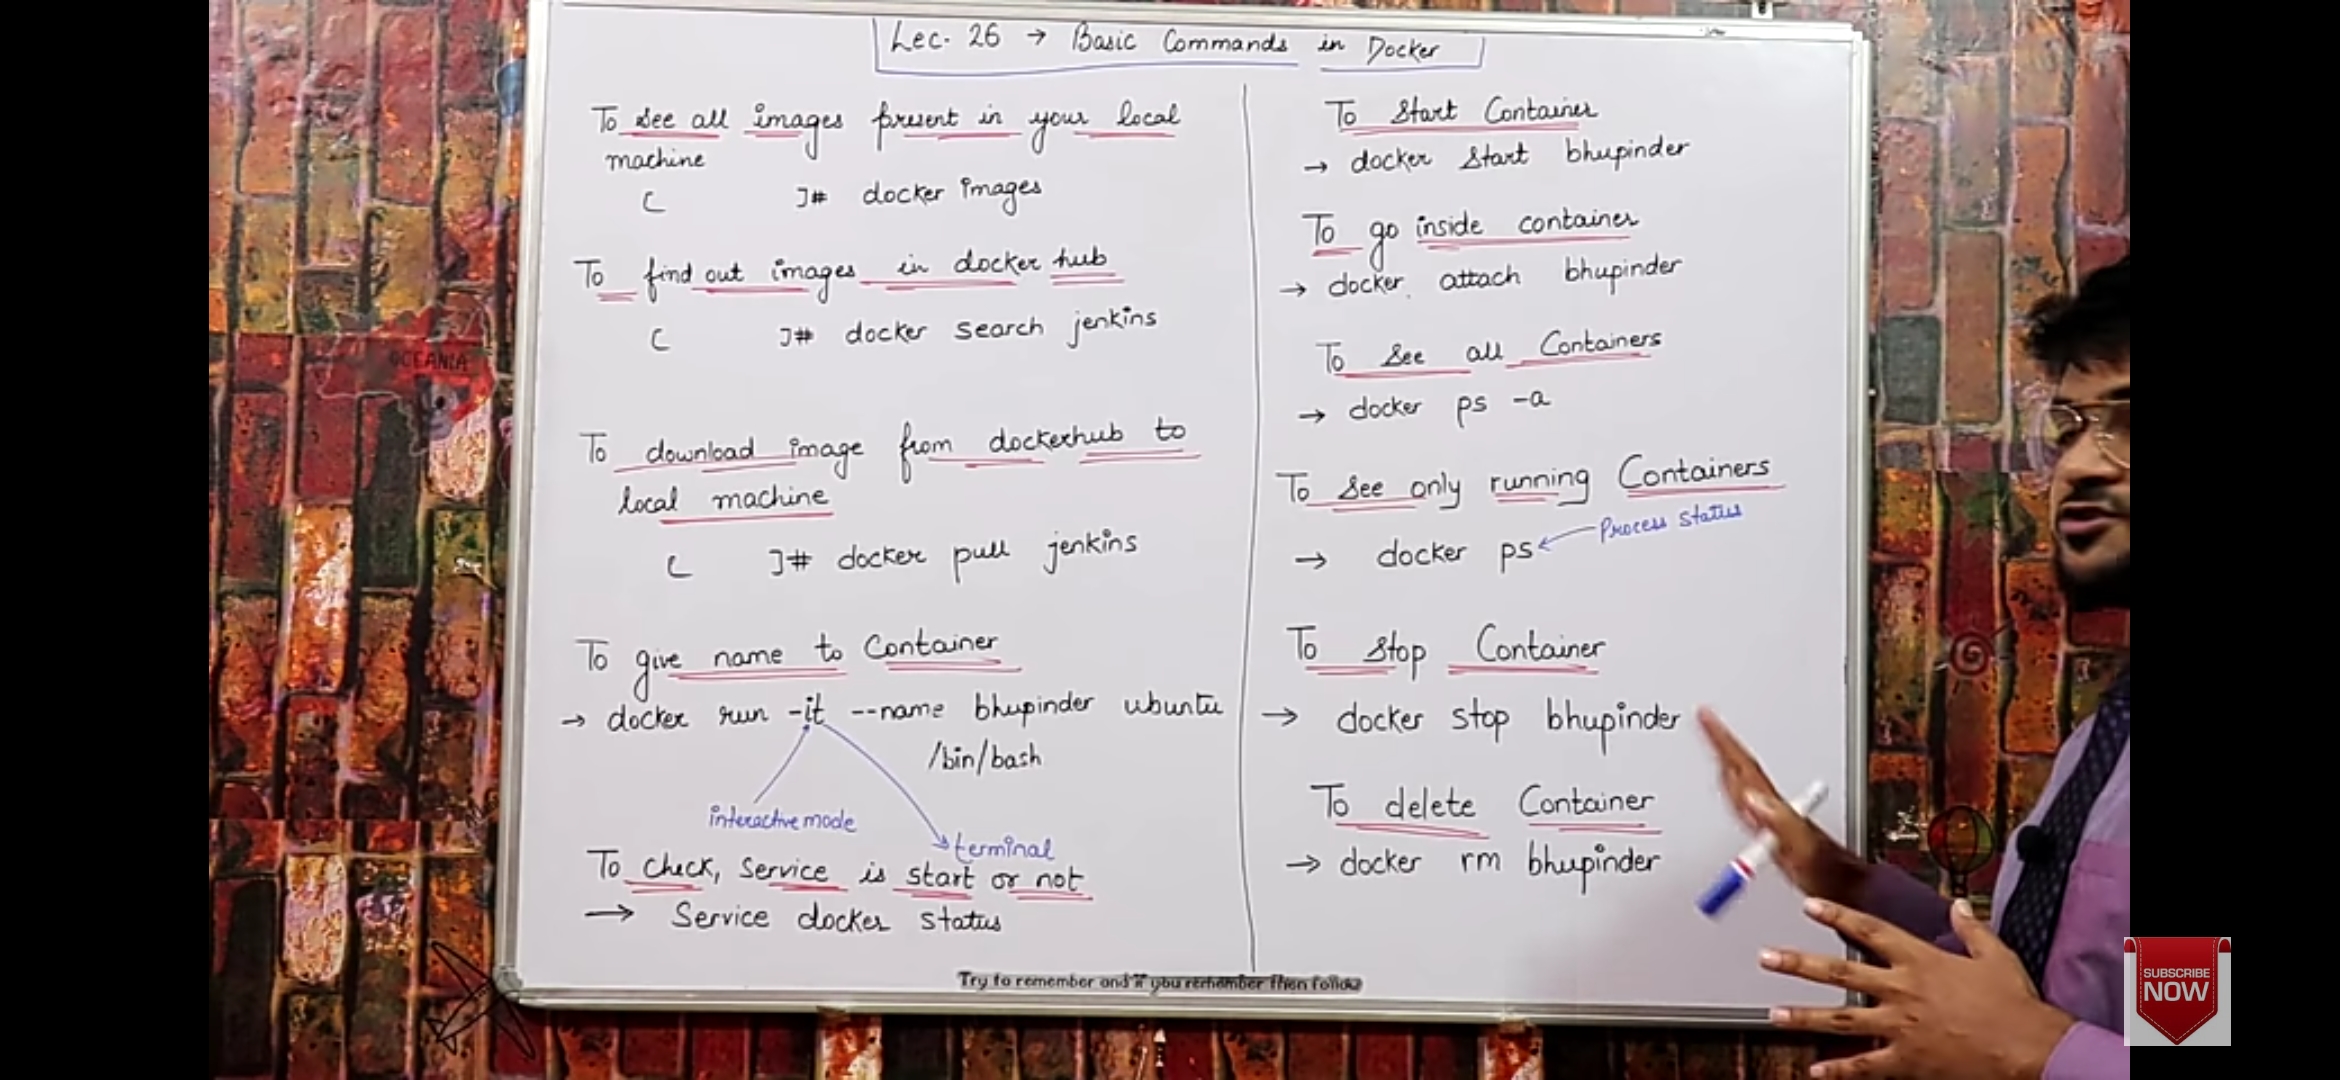 Lec. 26 → Basic Commands in Docker
To see all images present in your local
machine
[ ]# docker images
To find out images in docker hub
[ ]# docker search jenkins
To download image from dockerhub to
local machine
[ ]# docker pull jenkins
To give name to Container
→ docker run -it --name bhupinder ubuntu
/bin/bash
interactive mode
terminal
To check, service is start or not
→ Service docker status
To Start Container
→ docker start bhupinder
To go inside container
→ docker attach bhupinder
To see all Containers
→ docker ps -a
To see only running Containers
Process status
→ docker ps
To stop Container
→ docker stop bhupinder
To delete Container
→ docker rm bhupinder
Try to remember and if you remember then follow
OCEANIA
SUBSCRIBE
NOW